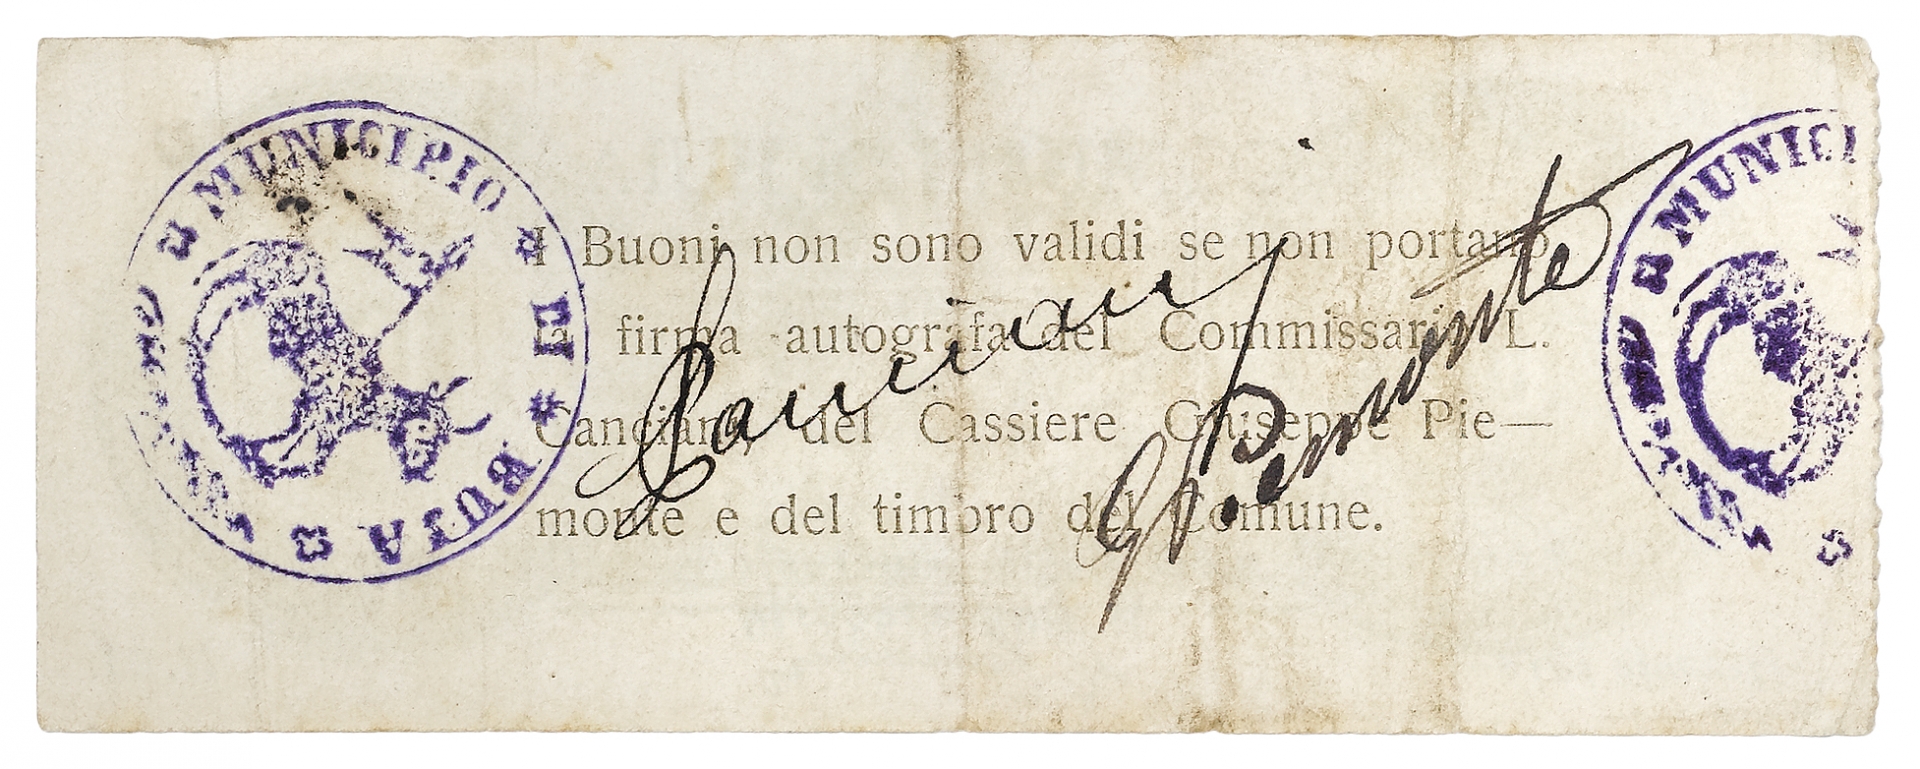 MUNICIPIO DI BUJA
I Buoni non sono validi se non portano
la firma autografa del Commissario L.
Canciani del Cassiere Giuseppe Pie—
monte e del timbro del Comune.
Canciani
G Piemonte
MUNICI